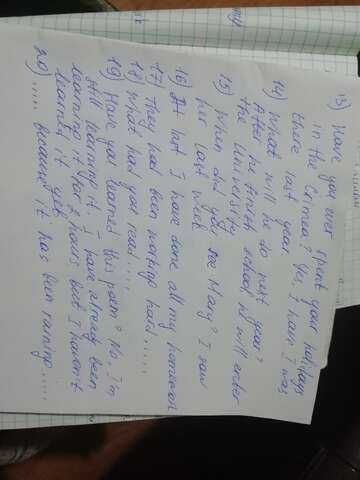 13) Have you ever spent your holidays
in the Crimea? Yes, I have I was
there last year
14) What will he do next year?
After he finish school he will enter
the University
15) When did you see Mary? I saw
her last week
16) At last I have done all my homework
17) They had been working hard.....
18) What had you read.....
19) Have you learned this poem? No, I'm
still learning it. I have already been
learning it for 2 hours but I haven't
learned it yet
20) ..... because it has been raining.....